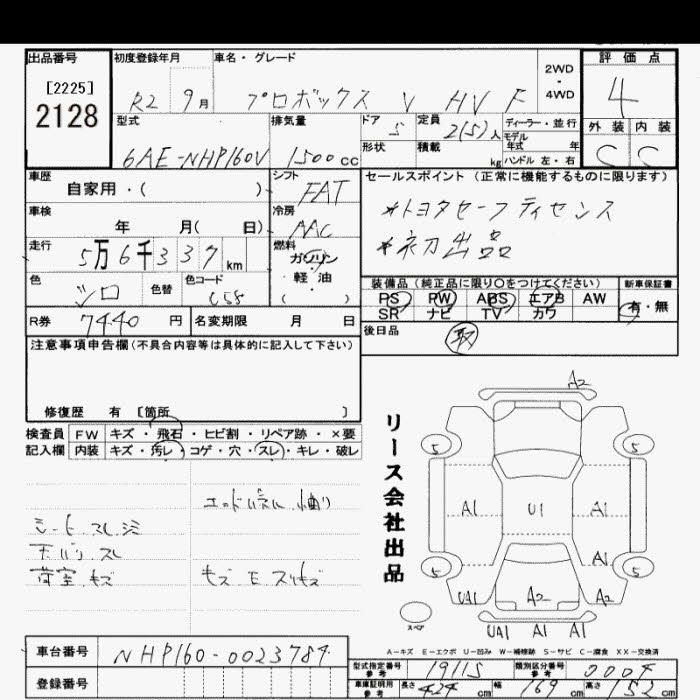 出品番号
[2225]
2128
初度登録年月
R2 9月
車名・グレード
プロボックス V HV F
2WD
・
4WD
評価点
4
外装 内装
C C
型式
6AE-NHP160V
排気量
1500cc
ドア
5
形状
定員
2(5)人
積載
kg
ディーラー・並行
モデル
年式 年
ハンドル 左・右
車歴
自家用・( )
シフト
FAT
セールスポイント(正常に機能するものに限ります)
*トヨタセーフティセンス
*初出品
車検
年 月( 日)
冷房
AAC
走行
5万6千337km
燃料
ガソリン
軽・油
( )
色
シロ
色替
色コード
058
装備品(純正品に限り○をつけてください)
PS PW ABS エアB AW
SR ナビ TV カワ
新車保証書
有・無
R券
7440円
名変期限 月 日
後日品
取
注意事項申告欄(不具合内容等は具体的に記入して下さい)
修復歴 有 [箇所 ]
検査員
記入欄
FW キズ・飛石・ヒビ割・リペア跡・×要
内装 キズ・汚レ・コゲ・穴・スレ・キレ・破レ
シートスレ.シミ
天バリ.スレ
荷室.キズ
リース会社出品
A2
5 5
A1 U1 A1
A1
5 5
UA1 A2 A2
スペア
UA1 A1 A1
A-キズ E-エクボ U-凹み W-補修跡 S-サビ C-腐食 XX-交換済
車台番号
NHP160-0023784
登録番号
型式指定番号
参考
19115
類別区分番号
参考
0004
車庫証明用
参考
長さ 424cm 幅 169cm 高さ 152cm